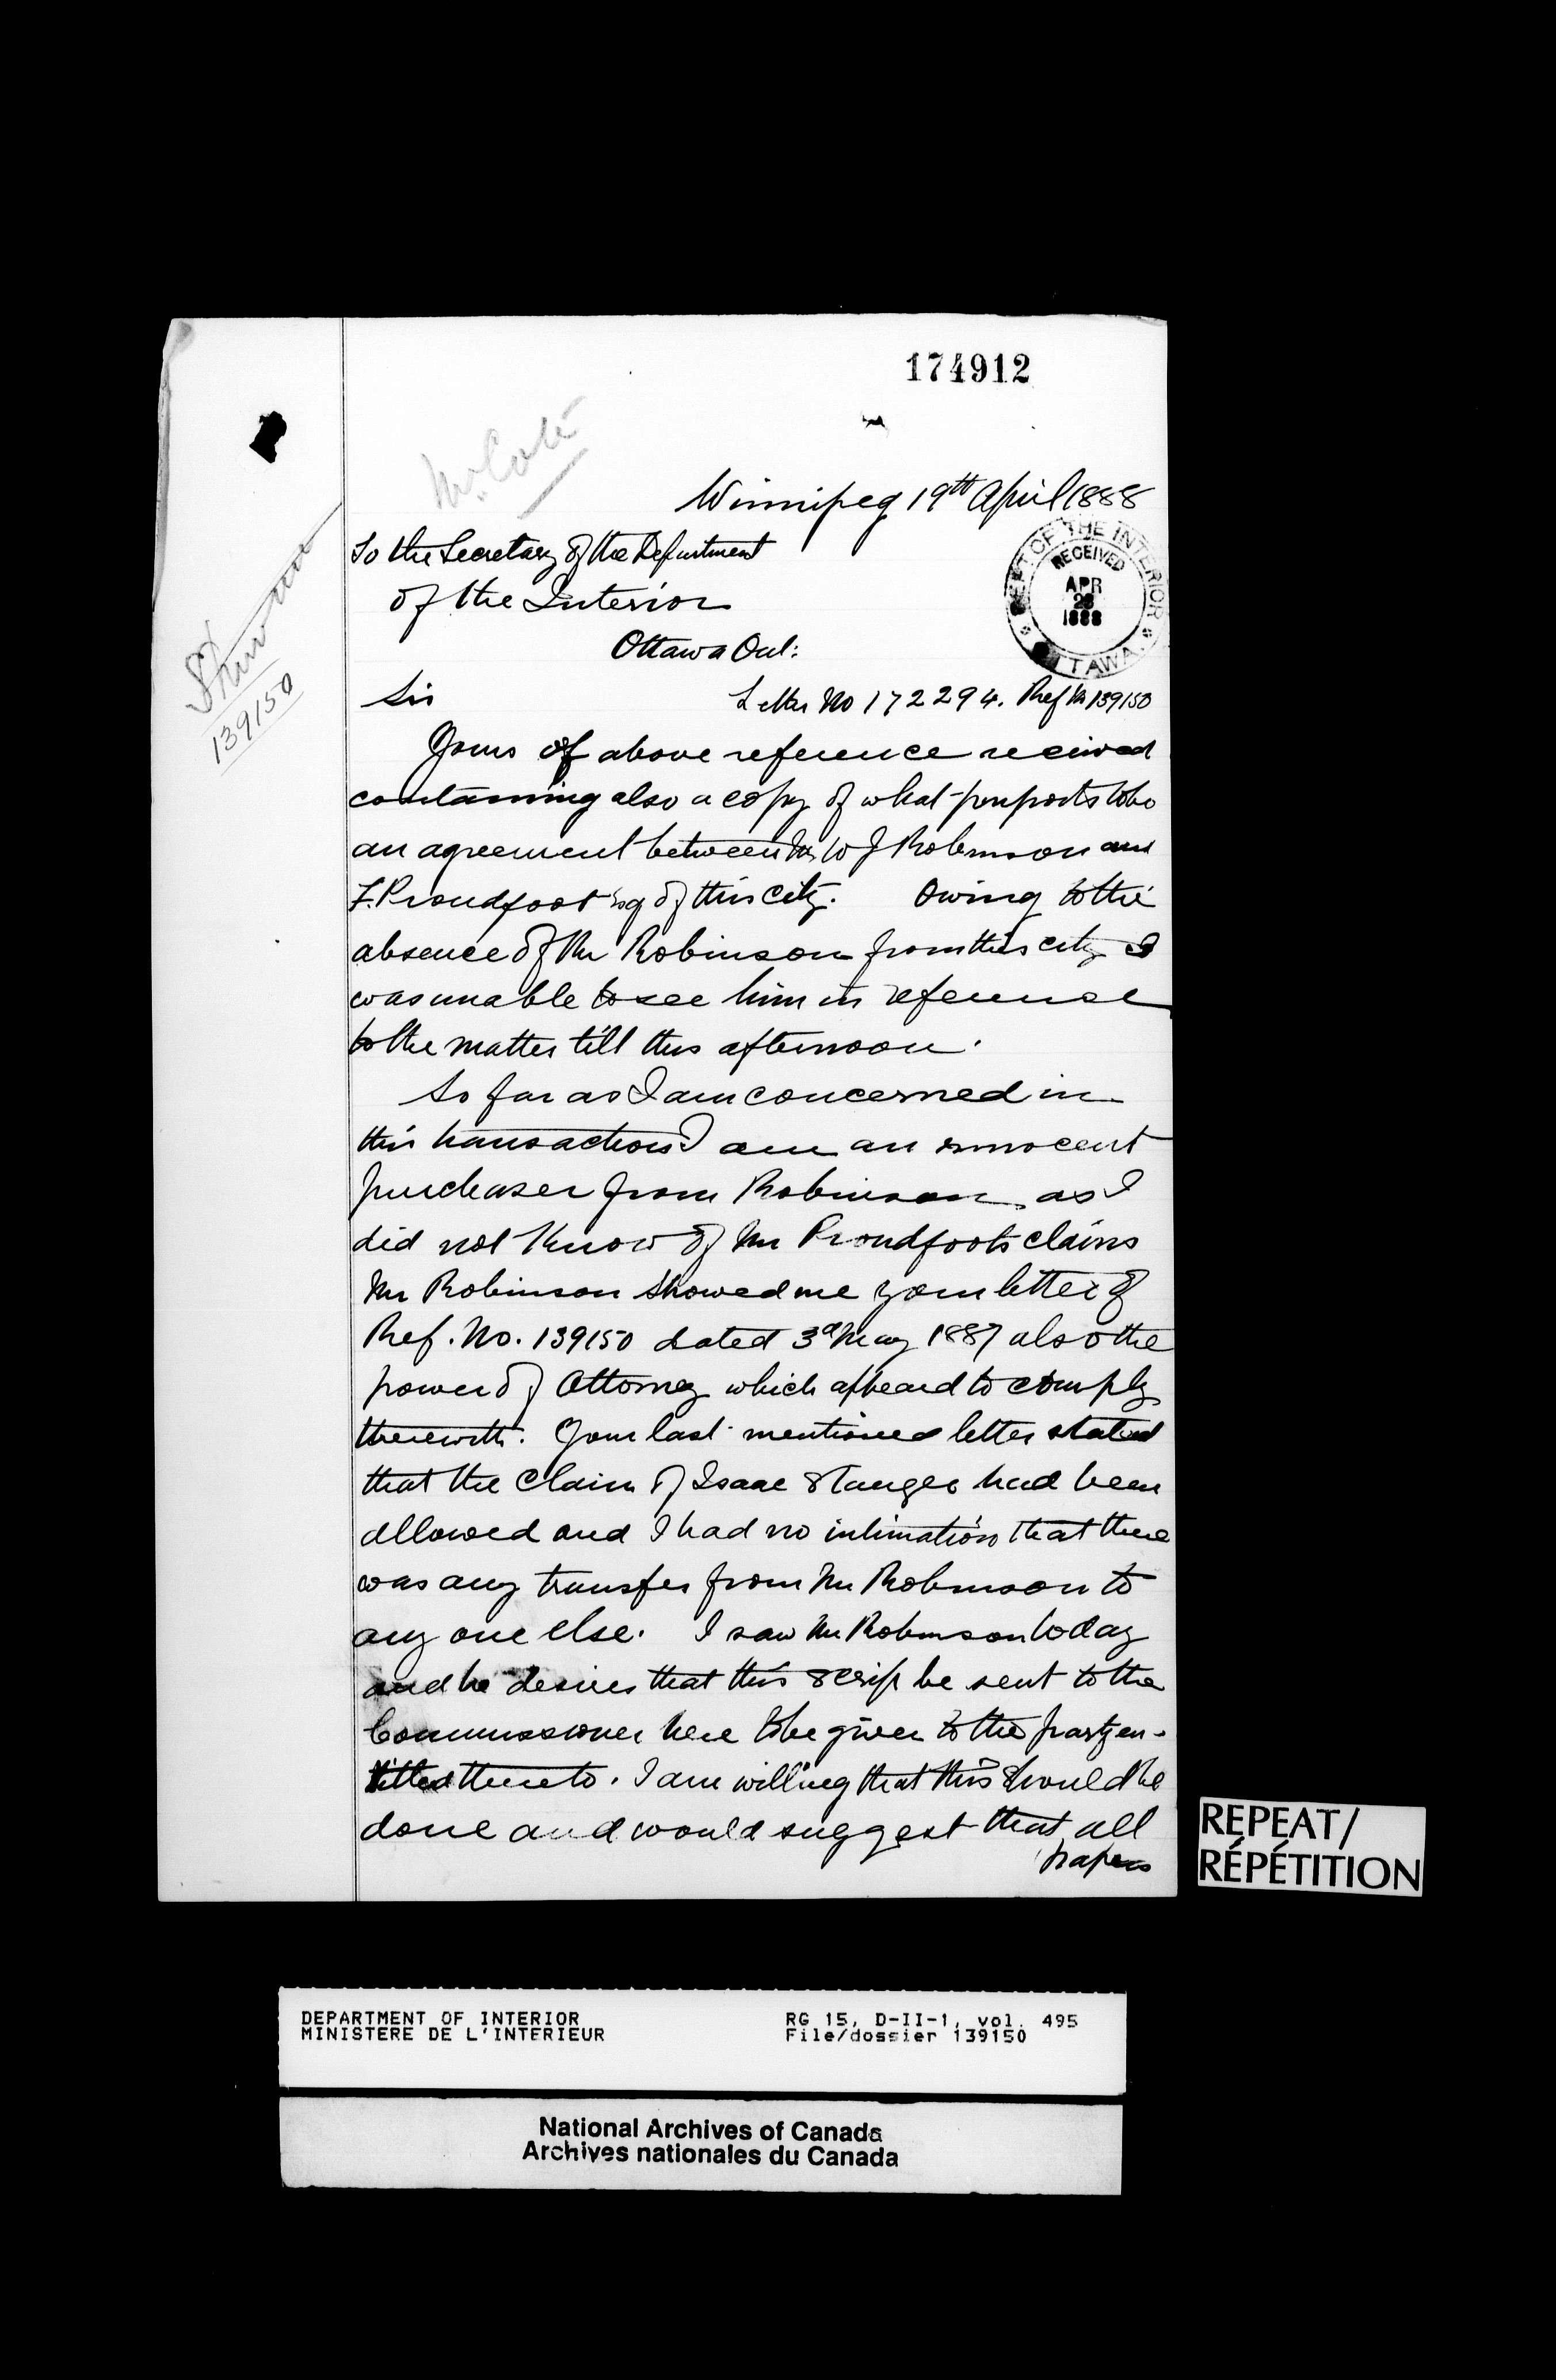 174912
Mr. Coté
Winnipeg 19th April 1888
To the Secretary of the Department
of the Interior
Ottawa Ont:
DEPT OF THE INTERIOR
RECEIVED
APR
28
1888
OTTAWA
139150
Sir
Letter No 172294. Ref No 139150
Yours of above reference received
containing also a copy of what purports to be
an agreement between Mr W J Robinson and
F. Proudfoot Esq of this city. Owing to the
absence of Mr Robinson from this city I
was unable to see him in reference
to the matter till this afternoon.
So far as I am concerned in
this transaction I am an innocent
purchaser from Robinson as I
did not know of Mr Proudfoots claims
Mr Robinson showed me your letter of
Ref. No. 139150 dated 3d May 1887 also the
power of Attorney which appeard to comply
therewith. Your last mentioned letter stated
that the claim of Isaac Stanger had been
allowed and I had no intimation that there
was any transfer from Mr Robinson to
any one else. I saw Mr Robinson today
and he desires that this scrip be sent to the
Commissioner here to be given to the party en-
titled thereto. I am willing that this should be
done and would suggest that all
papers
REPEAT/
RÉPÉTITION
DEPARTMENT OF INTERIOR
MINISTERE DE L'INTERIEUR
RG 15, D-II-1, vol. 495
File/dossier 139150
National Archives of Canada
Archives nationales du Canada